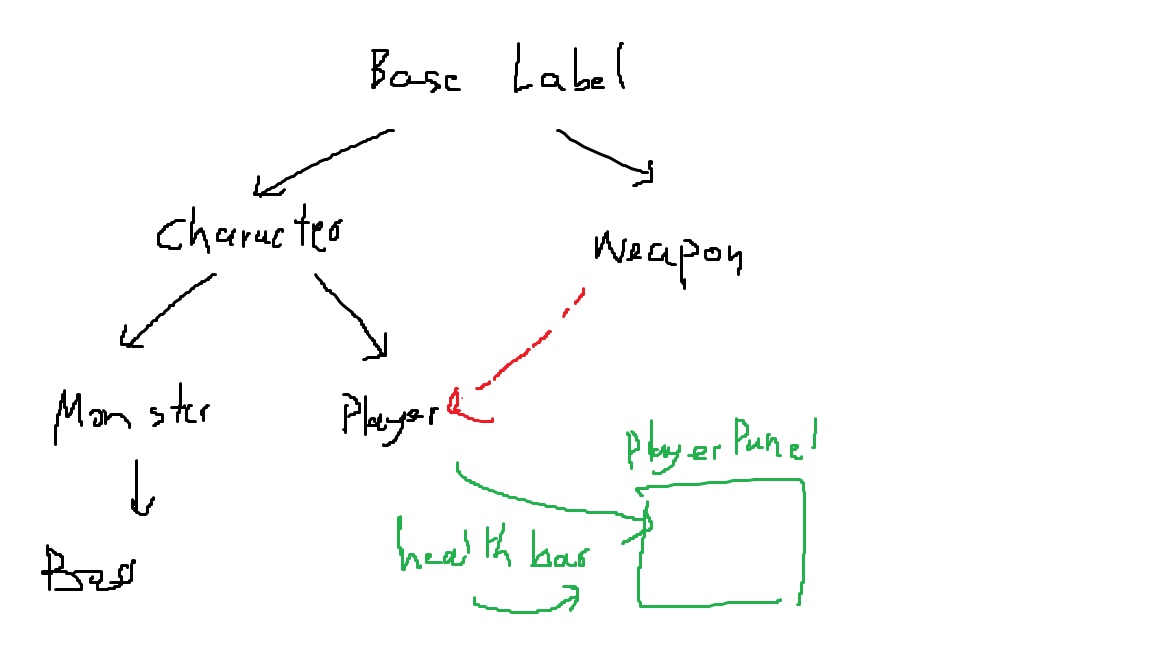 Base Label
Character
Weapon
Monster
Player
Player Panel
health bar
Boss